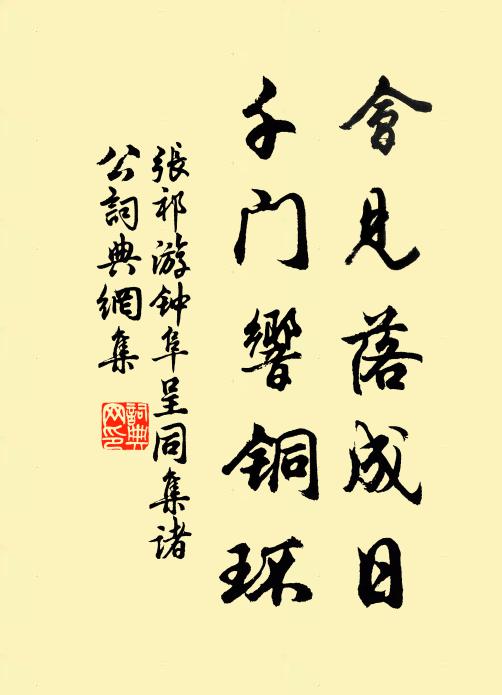 會見落成日
千门響銅环
張祁游钟阜呈同集诸
公詞典網集
詞典网印